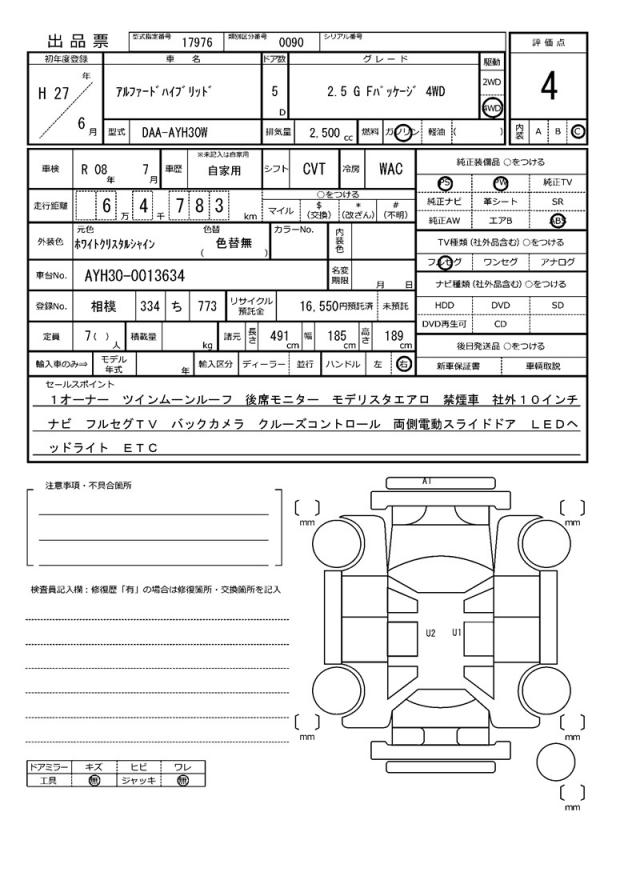 出 品 票 型式指定番号 17976 類別区分番号 0090 シリアル番号
初年度登録 車 名 ドア数 グレード 駆動 評 価 点
H 27 年 6 月 アルファードハイブリッド 5 D 2.5 G Fパッケージ 4WD 2WD 4WD 4
型式 DAA-AYH30W 排気量 2,500 cc 燃料 ガソリン 軽油 ( ) 内装 A B C
車検 R 08 年 7 月 車歴 ※未記入は自家用 自家用 シフト CVT 冷房 WAC
純正装備品 ○をつける
PS PW 純正TV
純正ナビ 革シート SR
純正AW エアB ABS
走行距離 6 4 万 千 7 8 3 km
○をつける
マイル $ (交換) * (改ざん) # (不明)
TV種類 (社外品含む) ○をつける
フルセグ ワンセグ アナログ
外装色 元色 ホワイトクリスタルシャイン 色替 ( 色替無 ) カラーNo. 内装色
ナビ種類 (社外品含む) ○をつける
HDD DVD SD
DVD再生可 CD
車台No. AYH30-0013634 名変期限 月 日
登録No. 相模 334 ち 773 リサイクル預託金 16,550円預託済 未預託
定員 7 ( ) 人 積載量 kg 諸元 長さ 491 cm 幅 185 cm 高さ 189 cm
後日発送品 ○をつける
新車保証書 車輌取説
輸入車のみ⇒ モデル年式 年 輸入区分 ディーラー 並行 ハンドル 左 右
セールスポイント
1オーナー ツインムーンルーフ 後席モニター モデリスタエアロ 禁煙車 社外10インチ
ナビ フルセグTV バックカメラ クルーズコントロール 両側電動スライドドア LEDヘ
ッドライト ETC
注意事項・不具合箇所
検査員記入欄：修復歴「有」の場合は修復箇所・交換箇所を記入
A1
mm
mm
U2 U1
mm
mm
mm
ドアミラー キズ ヒビ ワレ
工具 無 ジャッキ 無